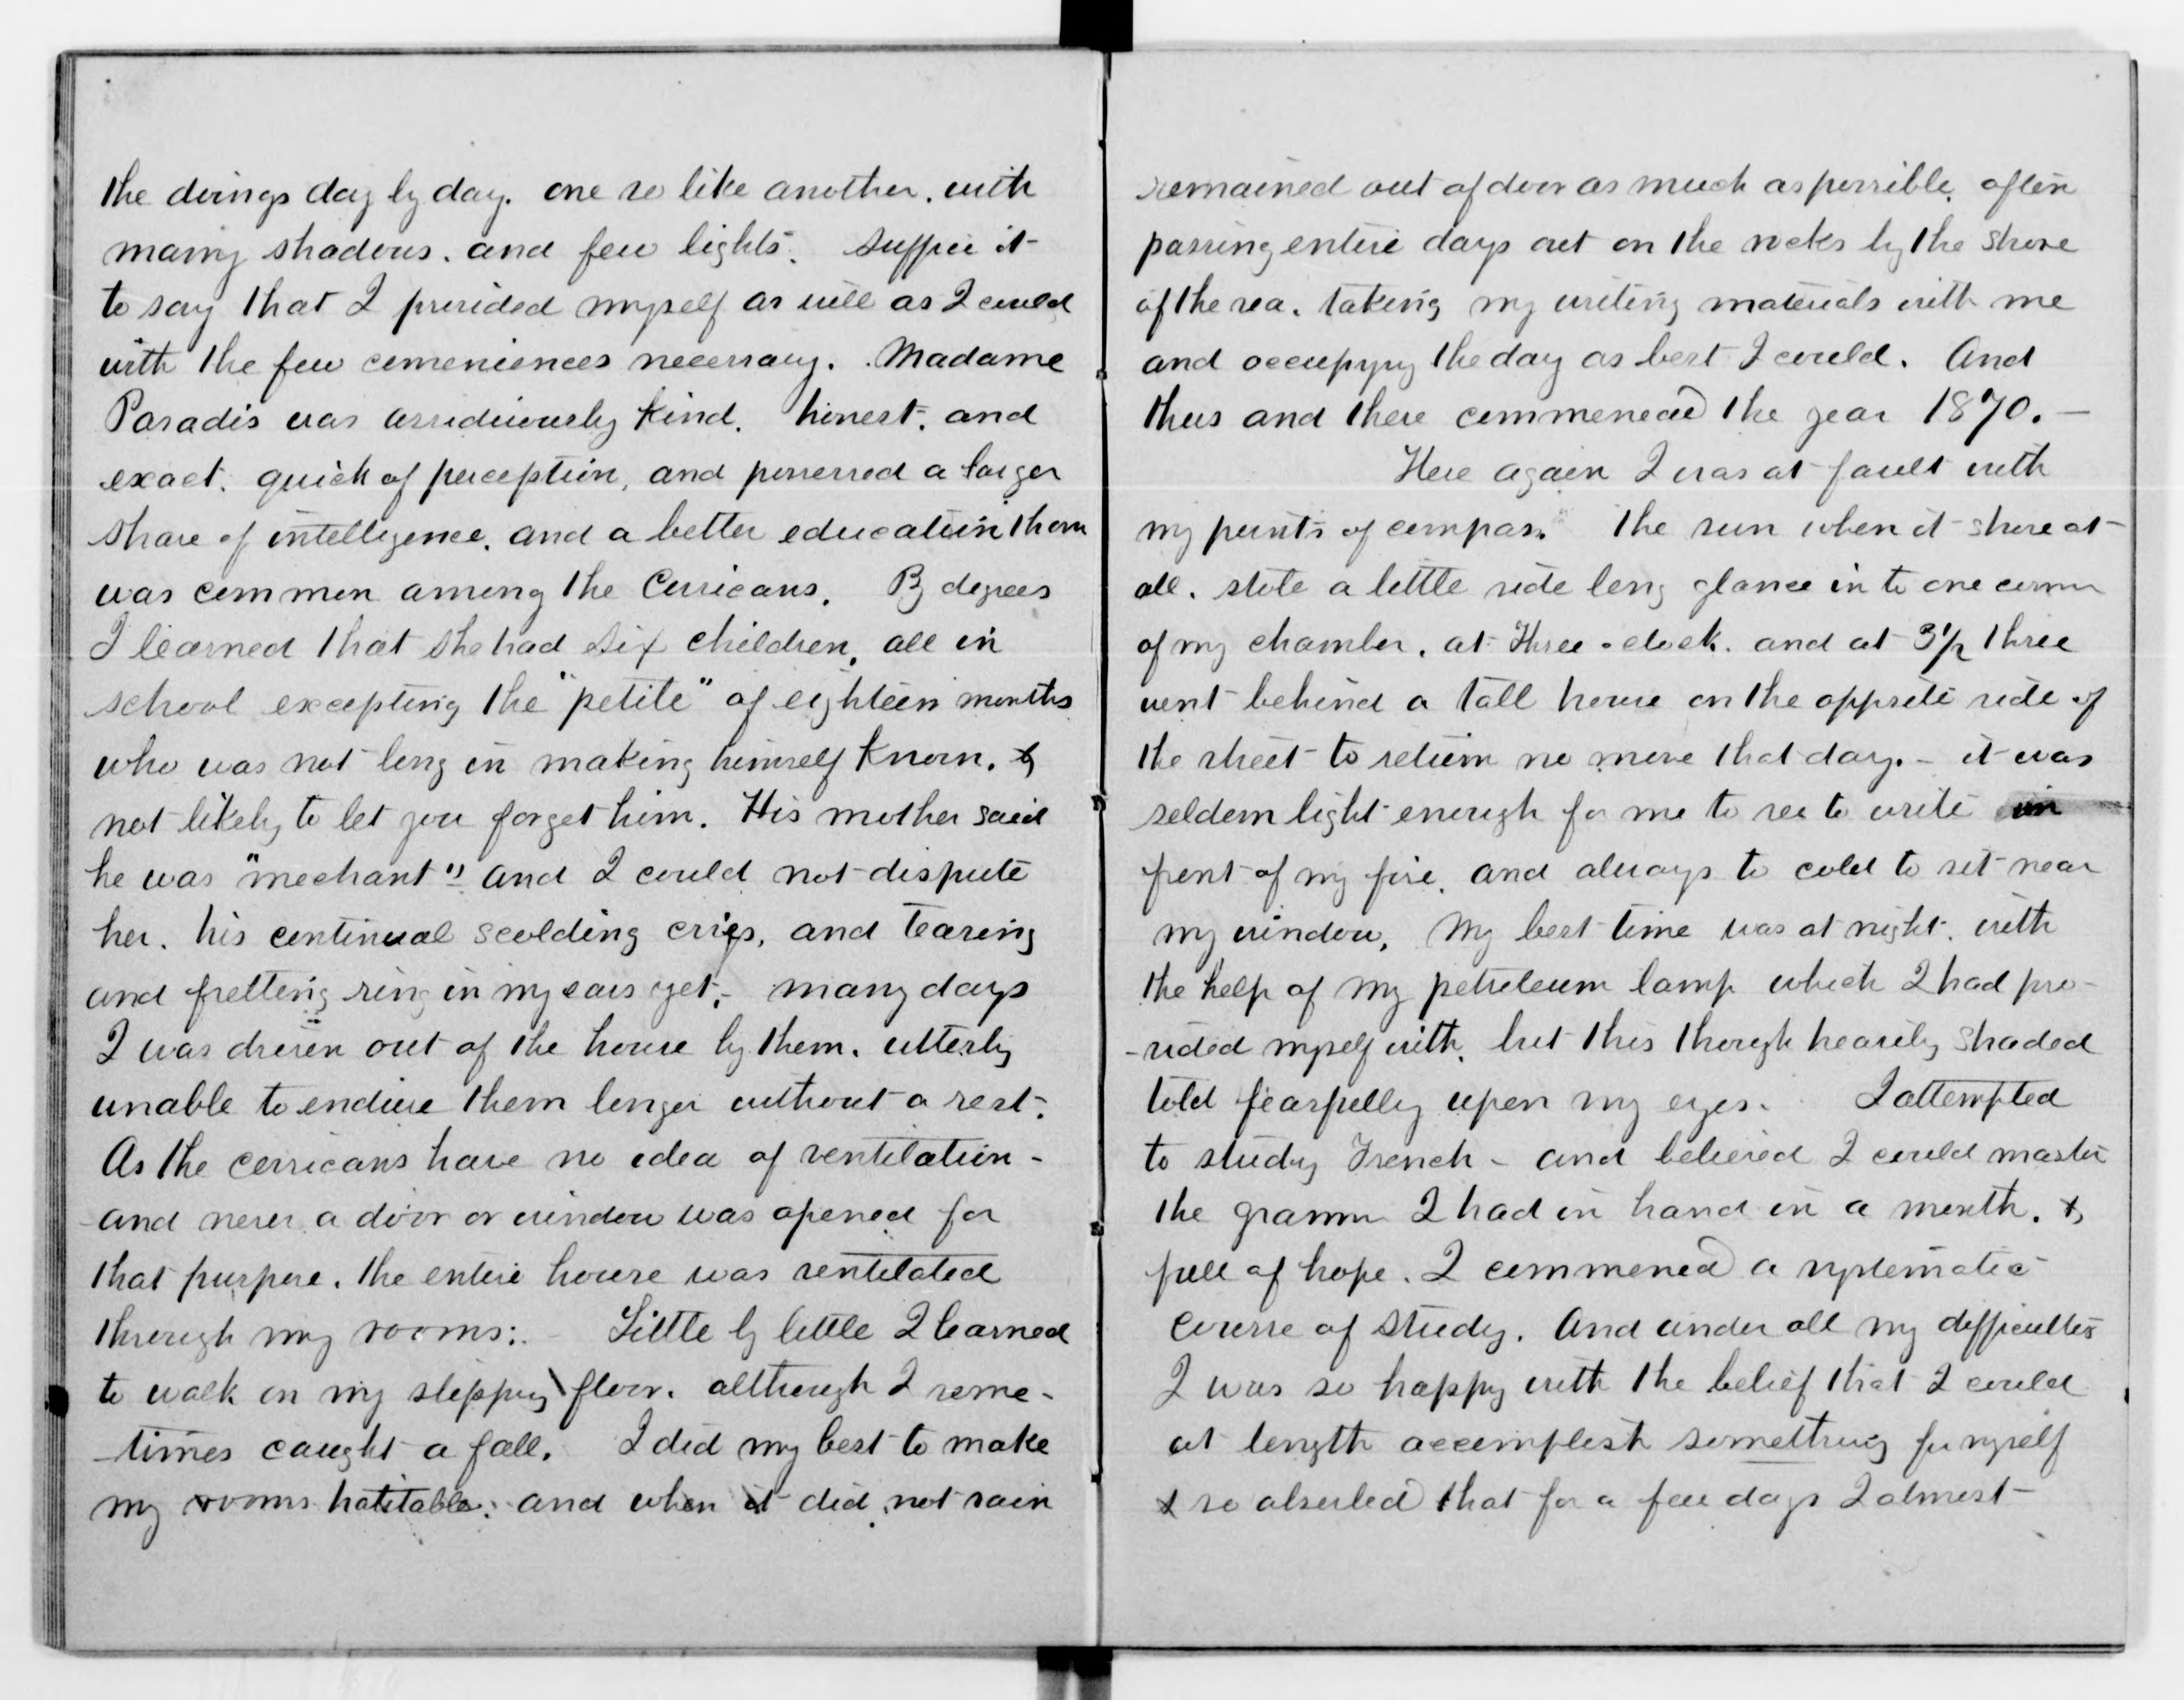 the doings day by day. one so like another. with
many shadows. and few lights. suffice it
to say that I provided myself as well as I could
with the few conveniences necessary. Madame
Paradis was assiduously kind. honest. and
exact. quick of perception, and possessed a larger
share of intelligence. and a better education than
was common among the Corsicans. By degrees
I learned that she had six children, all in
school excepting the "petite" of eighteen months
who was not long in making himself known. &
not likely to let you forget him. His mother said
he was "mechant" and I could not dispute
her. his continual scolding cries, and tearing
and fretting ring in my ears yet, - many days
I was driven out of the house by them. utterly
unable to endure them longer without a rest.
As the corsicans have no idea of ventilation -
and never a door or window was opened for
that purpose. the entire house was ventilated
through my rooms. Little by little I learned
to walk on my slippy floor. although I some-
-times caught a fall. I did my best to make
my rooms habitable. and when it did not rain
remained out of door as much as possible. often
passing entire days out on the rocks by the shore
of the sea. taking my writing materials with me
and occupyng the day as best I could. And
thus and there commenced the year 1870. -
Here again I was at fault with
my points of compass. the sun when it shone at
all. stole a little side long glance in to one corner
of my chamber. at three - clock. and at 3½ three
went behind a tall house on the opposite side of
the street to return no more that day. - it was
seldom light enough for me to see to write in
front of my fire. and always to cold to sit near
my window. My best time was at night. with
the help of my petroleum lamp which I had pro-
-vided myself with. but this though heavily shaded
told fearfully upon my eyes. I attempted
to study French - and believed I could master
the grammr I had in hand in a month. &
full of hope. I commenced a systematic
course of study. And under all my difficulties
I was so happy with the belief that I could
at length accomplish something for myself
& so absorbed that for a few days I almost